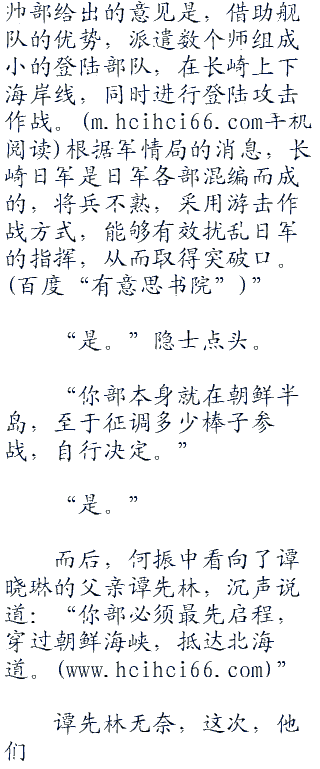 帅部给出的意见是，借助舰
队的优势，派遣数个师组成
小的登陆部队，在长崎上下
海岸线，同时进行登陆攻击
作战。(m.hcihci66.com手机
阅读)根据军情局的消息，长
崎日军是日军各部混编而成
的，将兵不熟，采用游击作
战方式，能够有效扰乱日军
的指挥，从而取得突破口。
(百度“有意思书院”)”
“是。”隐士点头。
“你部本身就在朝鲜半
岛，至于征调多少棒子参
战，自行决定。”
“是。”
而后，何振中看向了谭
晓琳的父亲谭先林，沉声说
道：“你部必须最先启程，
穿过朝鲜海峡，抵达北海
道。(www.hcihci66.com)”
谭先林无奈，这次，他
们